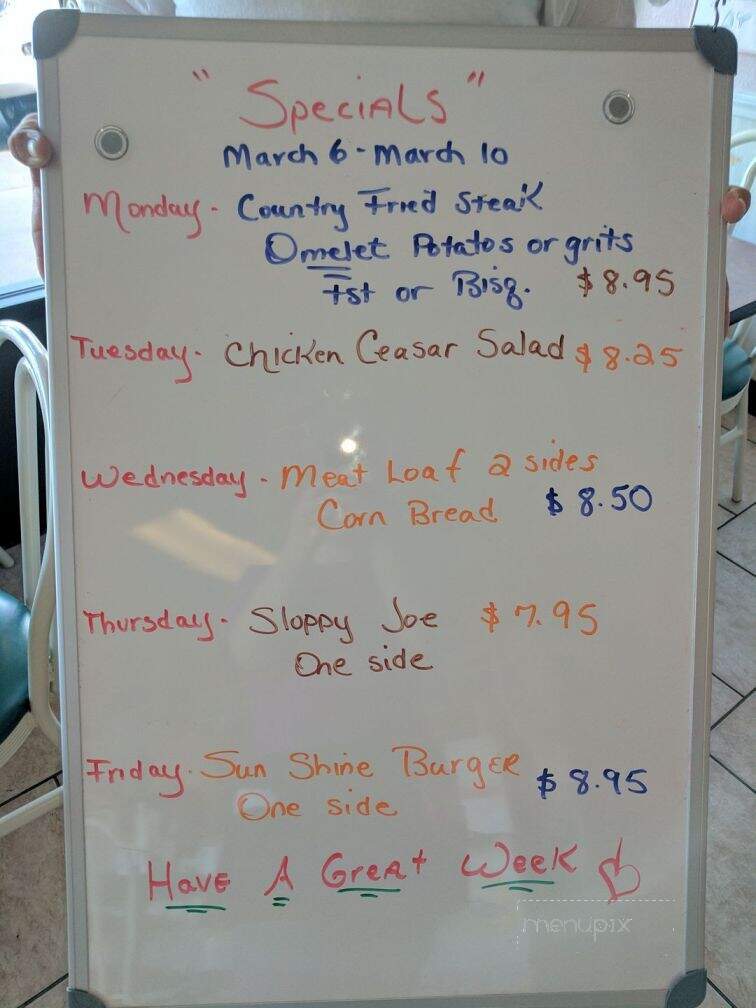 " Specials "
March 6 - March 10
Monday - Country Fried Steak
Omelet Potatos or grits
Tst or Bisq. $8.95
Tuesday - Chicken Ceasar Salad $8.25
Wednesday - Meat Loaf 2 sides
Corn Bread $8.50
Thursday - Sloppy Joe $7.95
One side
Friday - Sun Shine Burger
One side $8.95
Have A Great Week
menupix